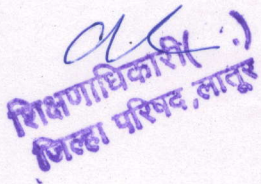 शिक्षणाधिकारी( . )
जिल्हा परिषद, लातूर